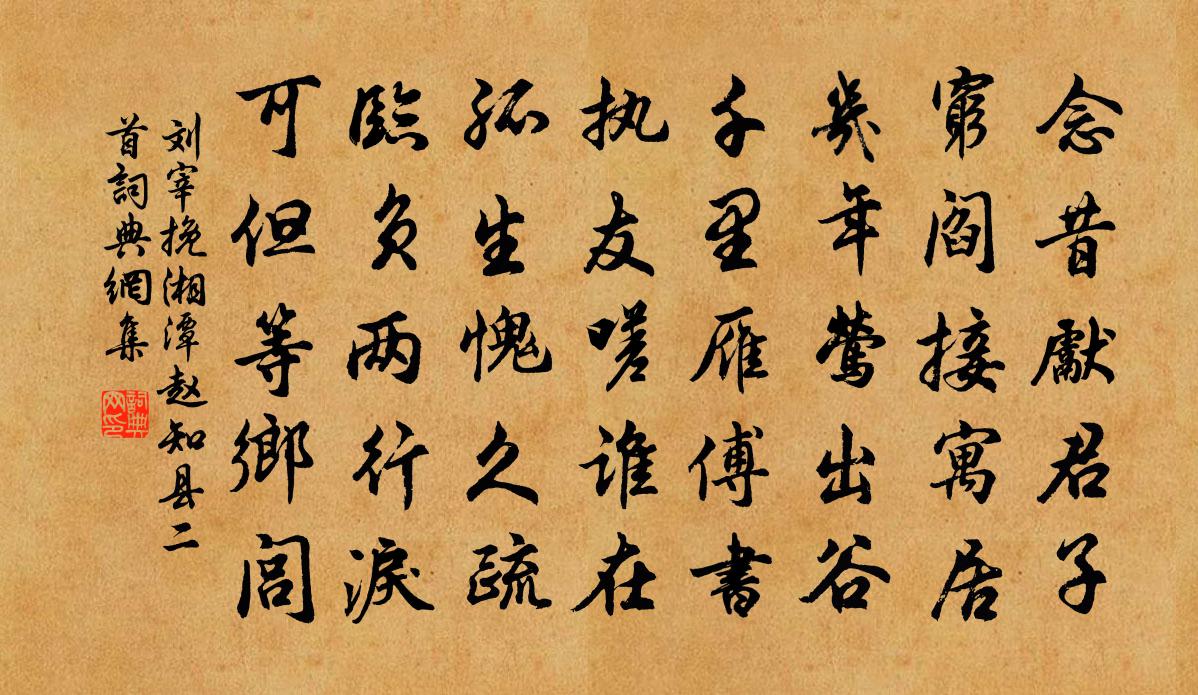 念昔獻君子
窮閻接寓居
幾年鶯出谷
千里雁傅書
执友嗟谁在
孤生愧久疏
臨负两行淚
可但等鄉閭
刘宰挽湘潭赵知县二
首詞典網集
詞典网印